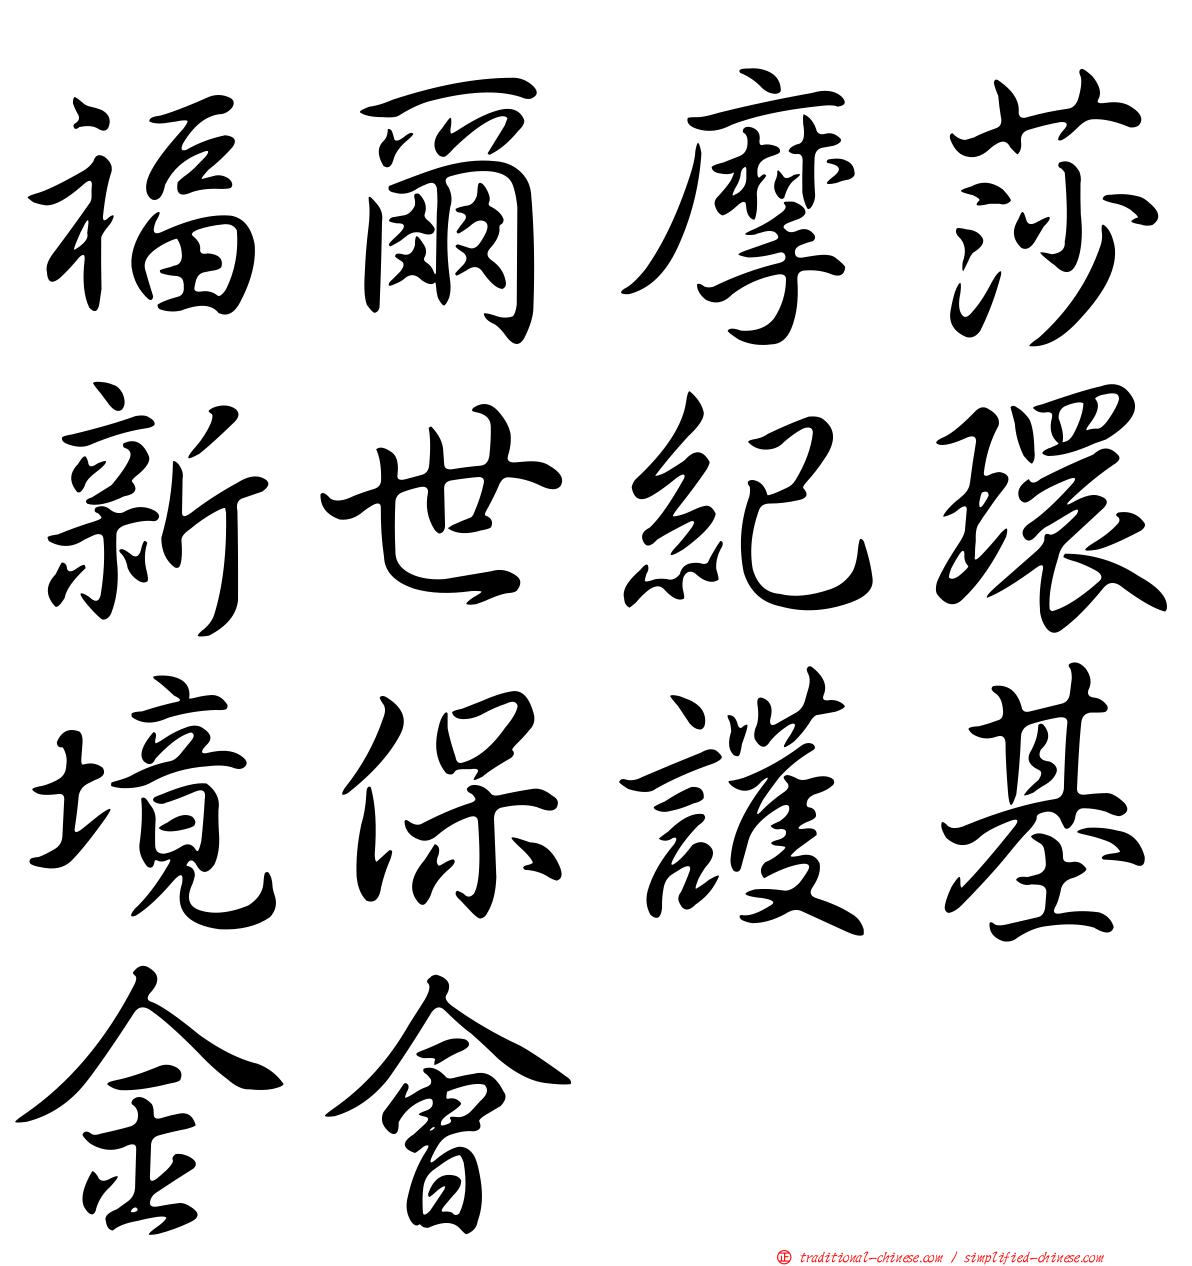 福爾摩莎
新世紀環
境保護基
金會
正 traditional-chinese.com / simplified-chinese.com